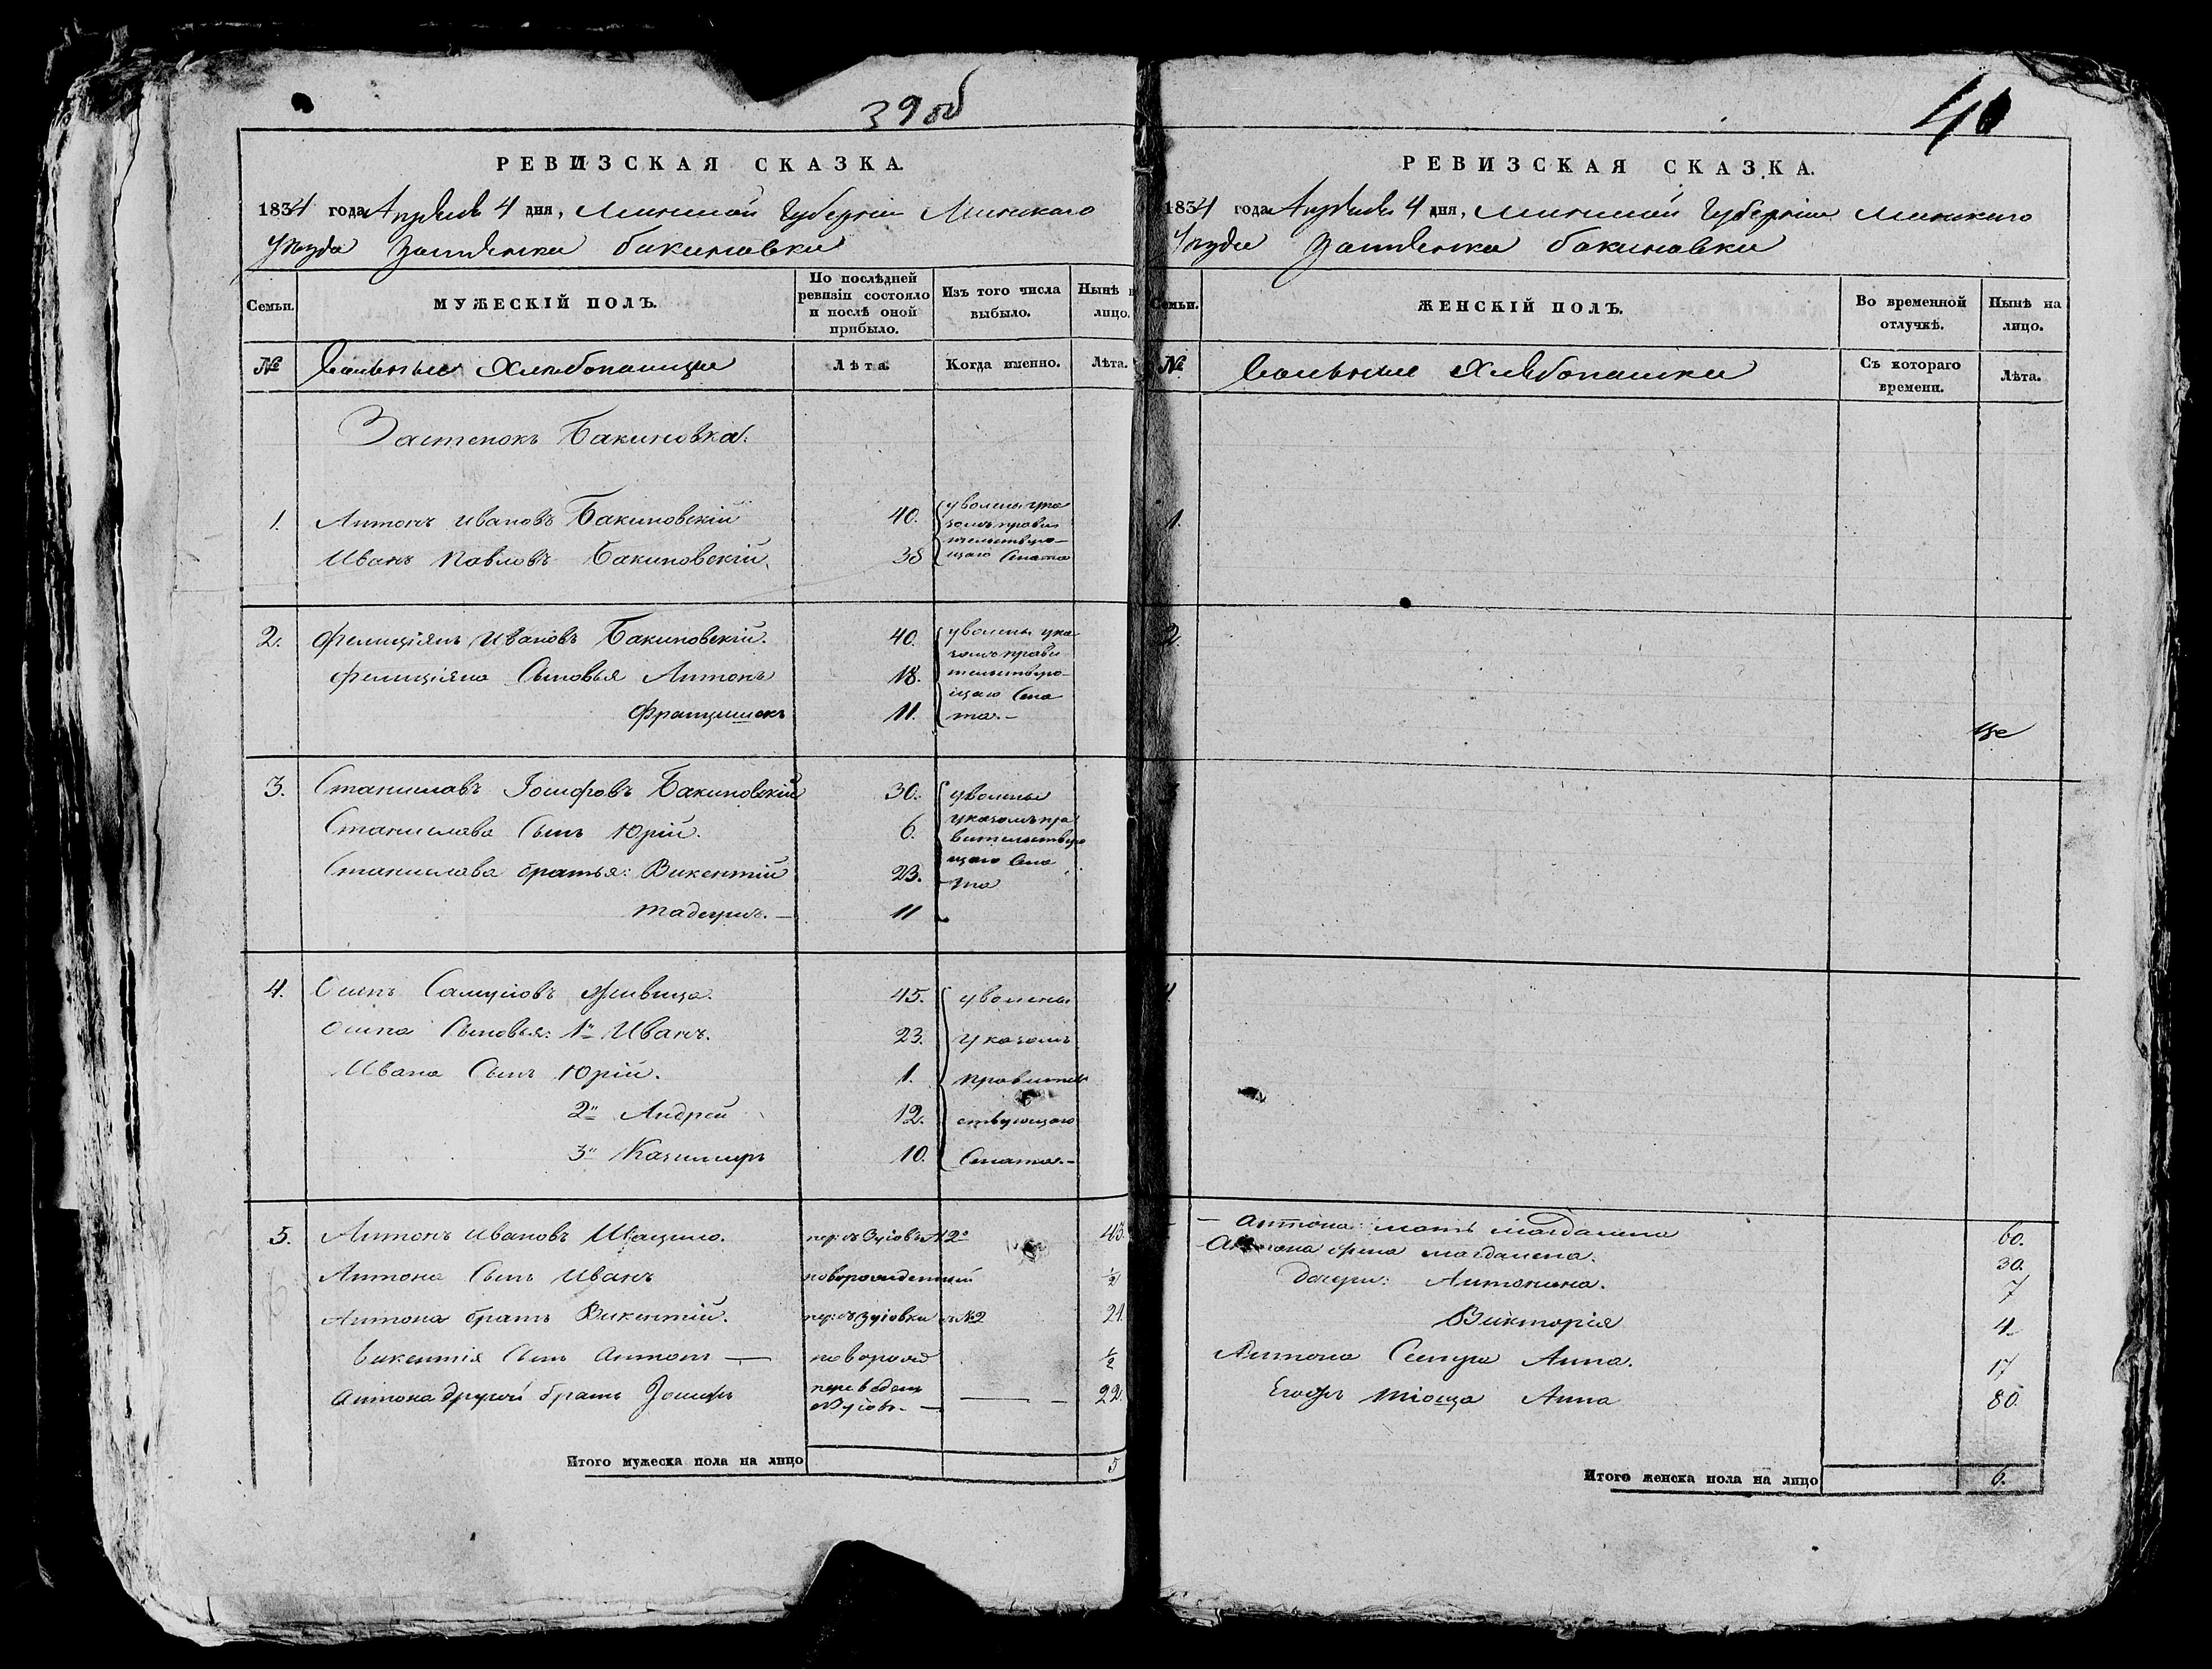 39об
РЕВИЗСКАЯ СКАЗКА.
1834 года Апрѣля 4 дня, Минской Губерніи Минскаго
Уѣзда Застѣнка Бакиновки
Семьи.
МУЖЕСКІЙ ПОЛЪ.
По послѣдней ревизіи состояло и послѣ оной прибыло.
Изъ того числа выбыло.
Нынѣ на лицо.
№
Вольные Хлѣбопашцы
Лѣта.
Когда именно.
Лѣта.
Застенокъ Бакиновка.
1. Антонъ Ивановъ Бакиновскій 40. уволены ука
зомъ прави
тельствую
Иванъ Павловъ Бакиновскій 38 щаго Сената
2. Фелиціянъ Ивановъ Бакиновскій. 40. уволены ука
зомъ прави
Фелиціяна Сыновья Антонъ 18. тельствую
щаго Сена
Францишекъ 11. та.
3. Станиславъ Іосифовъ Бакиновскій 30. уволены
Станислава Сынъ Юрій. 6. указомъ пра
вительствую
Станислава братья: Викентій 23. щаго Сена
та
Тадеушъ. 11
4. Осипъ Самуиловъ 45. уволены
Осипа Сыновья: 1й Иванъ. 23. указомъ
Ивана Сынъ Юрій. 1. правитель
2й Андрей 12. ствующаго
3й Казимиръ 10. Сената.
5. Антонъ Ивановъ 43.
Антона Сынъ Иванъ новорожденный ½
Антона братъ Викентій. 21.
Викентія Сынъ Антонъ — новорожд ½
Антона другой братъ Іосифъ переведенъ 22.
Итого мужеска пола на лицо 5
40
РЕВИЗСКАЯ СКАЗКА.
1834 года Апрѣля 4 дня, Минской Губерніи Минскаго
Уѣзда Застѣнка Бакиновки
Семьи.
ЖЕНСКІЙ ПОЛЪ.
Во временной отлучкѣ.
Нынѣ на лицо.
№
Вольные Хлѣбопашки
Съ котораго времени.
Лѣта.
1.
2.
4
Антона мать Магдалена 60.
Антона жена Магдалена. 30.
дочери: Антонина. 7
Викторія 4
Антона Сестра Анна. 17
тіоща Анна 80.
Итого женска пола на лицо 6.